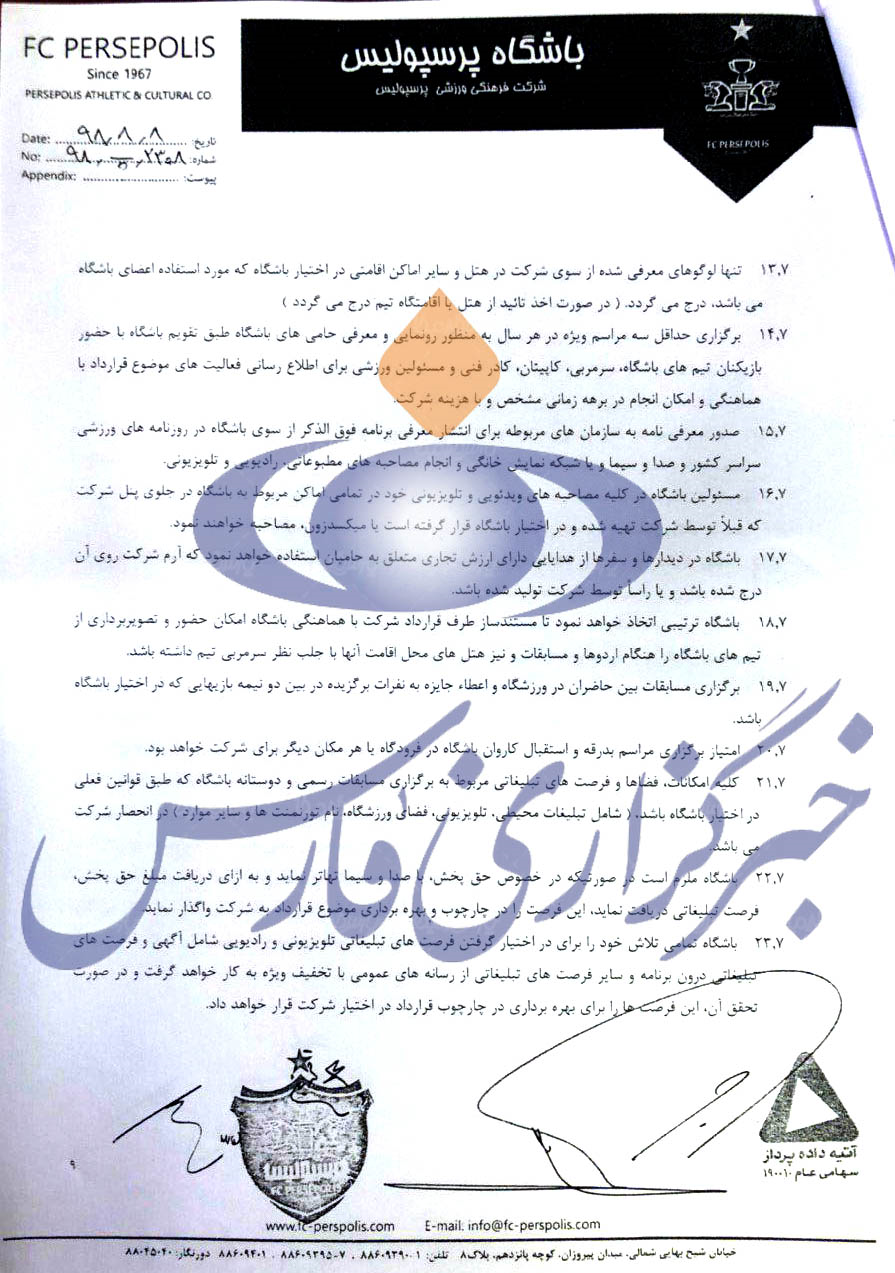 FC PERSEPOLIS
Since 1967
PERSEPOLIS ATHLETIC & CULTURAL CO.
باشگاه پرسپولیس
شرکت فرهنگی ورزشی پرسپولیس
FC PERSEPOLIS
Date: ۹۸،۸،۸ تاریخ:
No: ۹۸ ۲۳۰۸ شماره:
Appendix: پیوست:
۱۳،۷ تنها لوگوهای معرفی شده از سوی شرکت در هتل و سایر اماکن اقامتی در اختیار باشگاه که مورد استفاده اعضای باشگاه
می باشد، درج می گردد. ( در صورت اخذ تائید از هتل یا اقامتگاه تیم درج می گردد )
۱۴،۷ برگزاری حداقل سه مراسم ویژه در هر سال به منظور رونمایی و معرفی حامی های باشگاه طبق تقویم باشگاه با حضور
بازیکنان تیم های باشگاه، سرمربی، کاپیتان، کادر فنی و مسئولین ورزشی برای اطلاع رسانی فعالیت های موضوع قرارداد با
هماهنگی و امکان انجام در برهه زمانی مشخص و با هزینه شرکت.
۱۵،۷ صدور معرفی نامه به سازمان های مربوطه برای انتشار معرفی برنامه فوق الذکر از سوی باشگاه در روزنامه های ورزشی
سراسر کشور و صدا و سیما و یا شبکه نمایش خانگی و انجام مصاحبه های مطبوعاتی، رادیویی و تلویزیونی.
۱۶،۷ مسئولین باشگاه در کلیه مصاحبه های ویدئویی و تلویزیونی خود در تمامی اماکن مربوط به باشگاه در جلوی پنل شرکت
که قبلاً توسط شرکت تهیه شده و در اختیار باشگاه قرار گرفته است یا میکسدزون، مصاحبه خواهند نمود.
۱۷،۷ باشگاه در دیدارها و سفرها از هدایایی دارای ارزش تجاری متعلق به حامیان استفاده خواهد نمود که آرم شرکت روی آن
درج شده باشد و یا راساً توسط شرکت تولید شده باشد.
۱۸،۷ باشگاه ترتیبی اتخاذ خواهد نمود تا مستندساز طرف قرارداد شرکت با هماهنگی باشگاه امکان حضور و تصویربرداری از
تیم های باشگاه را هنگام اردوها و مسابقات و نیز هتل های محل اقامت آنها با جلب نظر سرمربی تیم داشته باشد.
۱۹،۷ برگزاری مسابقات بین حاضران در ورزشگاه و اعطاء جایزه به نفرات برگزیده در بین دو نیمه بازیهایی که در اختیار باشگاه
باشد.
۲۰،۷ امتیاز برگزاری مراسم بدرقه و استقبال کاروان باشگاه در فرودگاه یا هر مکان دیگر برای شرکت خواهد بود.
۲۱،۷ کلیه امکانات، فضاها و فرصت های تبلیغاتی مربوط به برگزاری مسابقات رسمی و دوستانه باشگاه که طبق قوانین فعلی
در اختیار باشگاه باشد، ( شامل تبلیغات محیطی، تلویزیونی، فضای ورزشگاه، نام تورنمنت ها و سایر موارد ) در انحصار شرکت
می باشد.
۲۲،۷ باشگاه ملزم است در صورتیکه در خصوص حق پخش، با صدا و سیما تهاتر نماید و به ازای دریافت مبلغ حق پخش،
فرصت تبلیغاتی دریافت نماید، این فرصت را در چارچوب و بهره برداری موضوع قرارداد به شرکت واگذار نماید.
۲۳،۷ باشگاه تمامی تلاش خود را برای در اختیار گرفتن فرصت های تبلیغاتی تلویزیونی و رادیویی شامل آگهی و فرصت های
تبلیغاتی درون برنامه و سایر فرصت های تبلیغاتی از رسانه های عمومی با تخفیف ویژه به کار خواهد گرفت و در صورت
تحقق آن، این فرصت ها را برای بهره برداری در چارچوب قرارداد در اختیار شرکت قرار خواهد داد.
خبرگزاری فارس
FC PERSEPOLIS
آتیه داده پرداز
سهامی عام ۱۹۰۰۱۰
۹
www.fc-perspolis.com E-mail: info@fc-perspolis.com
خیابان شیخ بهایی شمالی، میدان پیروزان، کوچه پانزدهم، پلاک۸ تلفن: ۸۸۶۰۹۳۹۰۰۱ ، ۸۸۶۰۹۳۹۵-۷ ، ۸۸۶۰۹۴۰۱ دورنگار: ۸۸۰۴۵۰۴۰